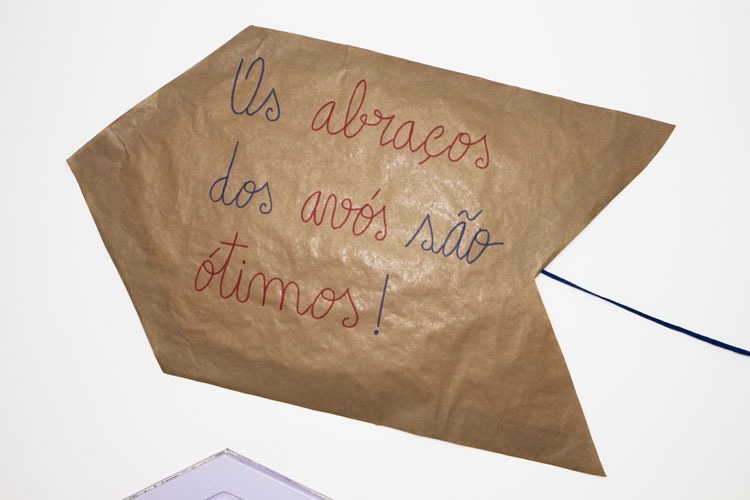 Os abraços
dos avós são
ótimos!